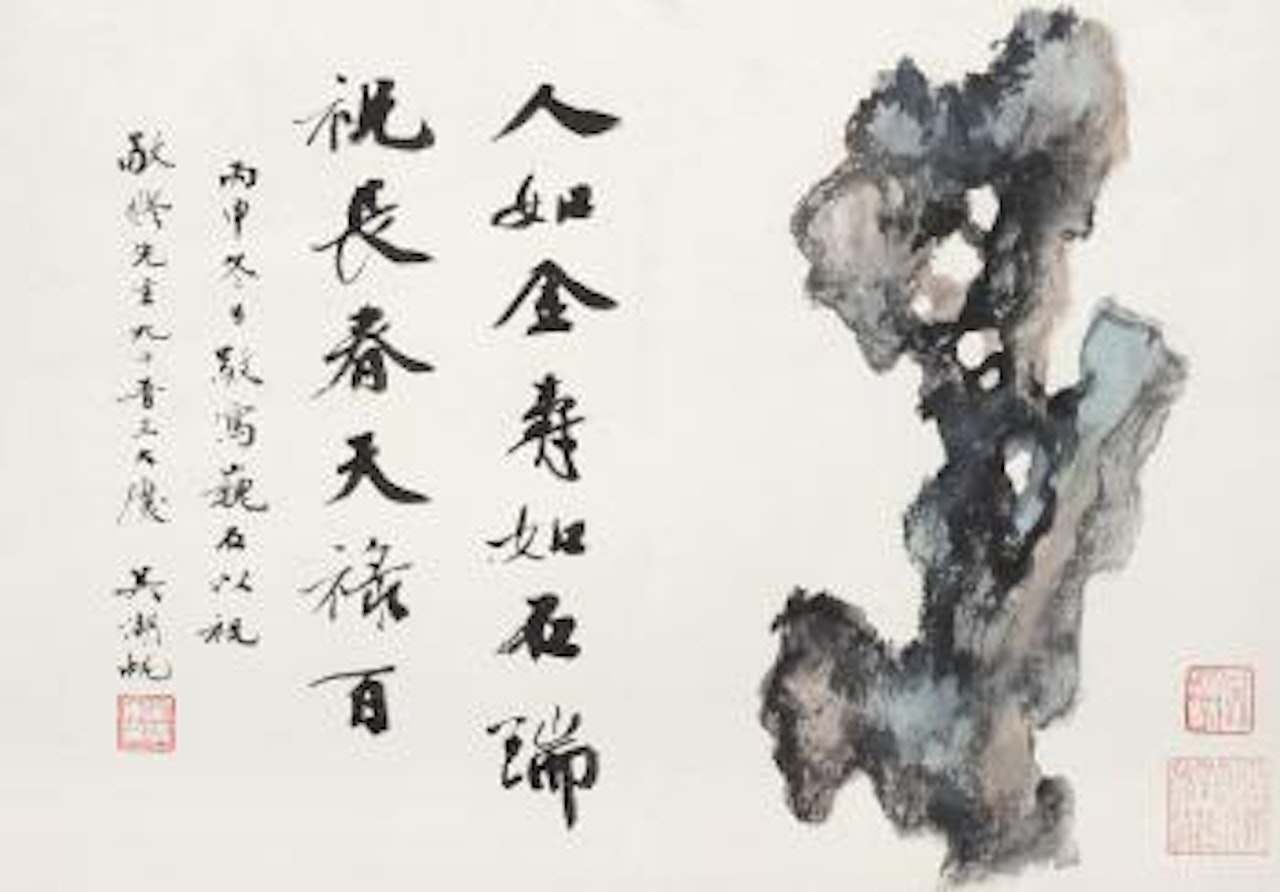 人如金寿如石瑞
祝長春天祿百
丙申冬日敬寫巍石以祝
敬修先生九十晋三大慶 吳湖帆